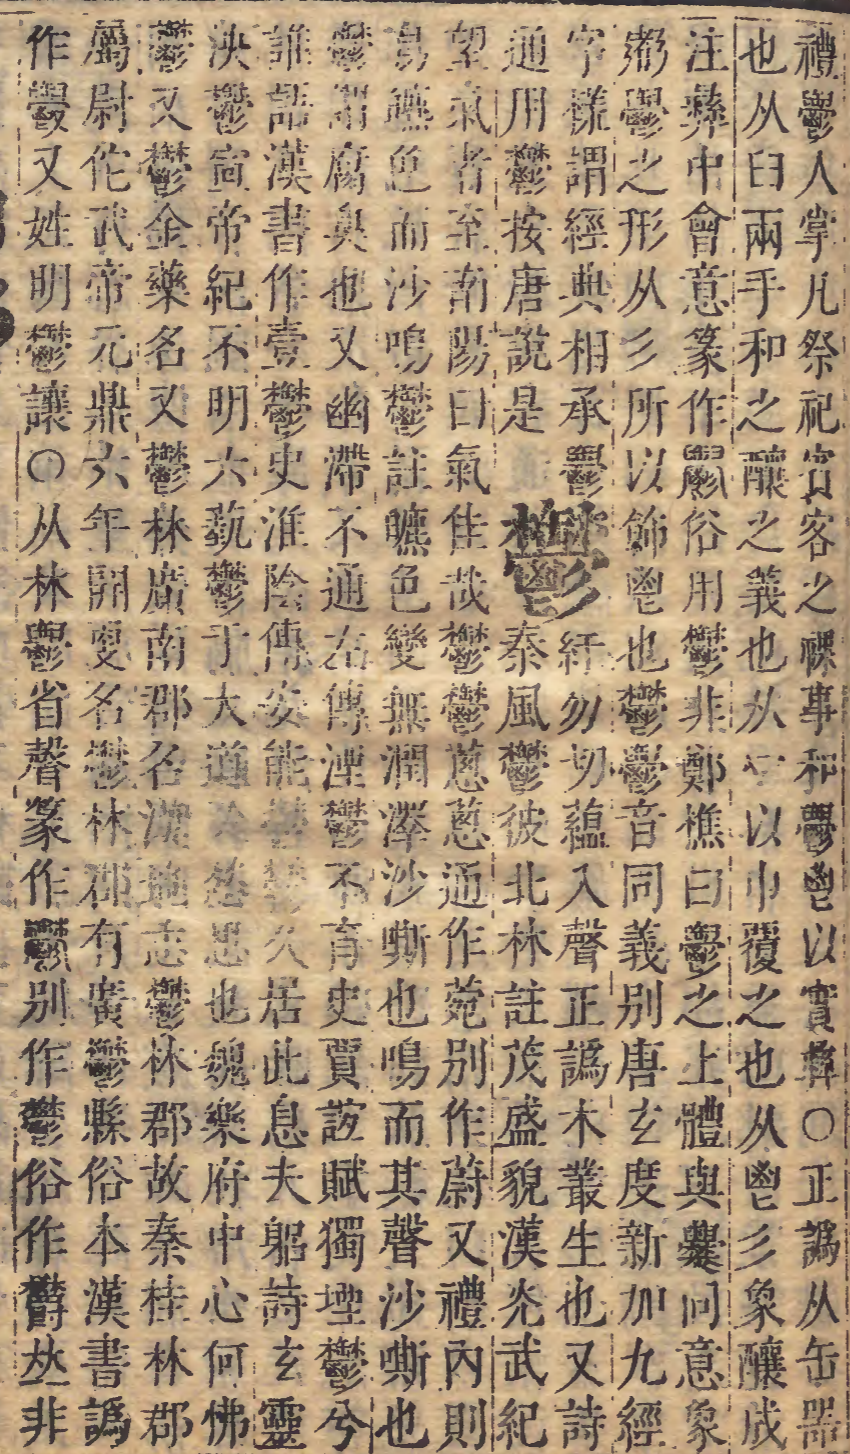 禮鬱人掌凡祭祀賓客之祼事和鬱鬯以實彝○正譌从缶器
也从臼兩手和之釀之義也从冖以巾覆之也从鬯彡象釀成
注彝中會意篆作鬱俗用鬱非鄭樵曰鬱之上體與爨同意象
之形从彡所以飾鬯也鬱鬱音同義別唐玄度新加九經
字樣謂經典相承鬱鬱紆勿切薀入聲正譌木叢生也又詩
通用鬱按唐說是鬱秦風鬱彼北林註茂盛貌漢光武紀
望氣者至南陽曰氣佳哉鬱鬱蔥蔥通作菀別作蔚又禮內則
鳥皫色而沙鳴鬱註皫色變無潤澤沙嘶也鳴而其聲沙嘶也
鬱謂腐臭也又幽滯不通左傳湮鬱不育史賈誼賦獨堙鬱兮
誰語漢書作壹鬱史淮陰傳安能鬱鬱久居此息夫躬詩玄靈
泱鬱宣帝紀不明六藝鬱于大道思也魏樂府中心何怫
鬱又鬱金藥名又鬱林廣南郡名地志鬱林郡故秦桂林郡
屬尉佗武帝元鼎六年開更名鬱林郡有廣鬱縣俗本漢書譌
作鬱又姓明鬱讓○从林鬱省聲篆作鬱別作鬱俗作欝㚘非